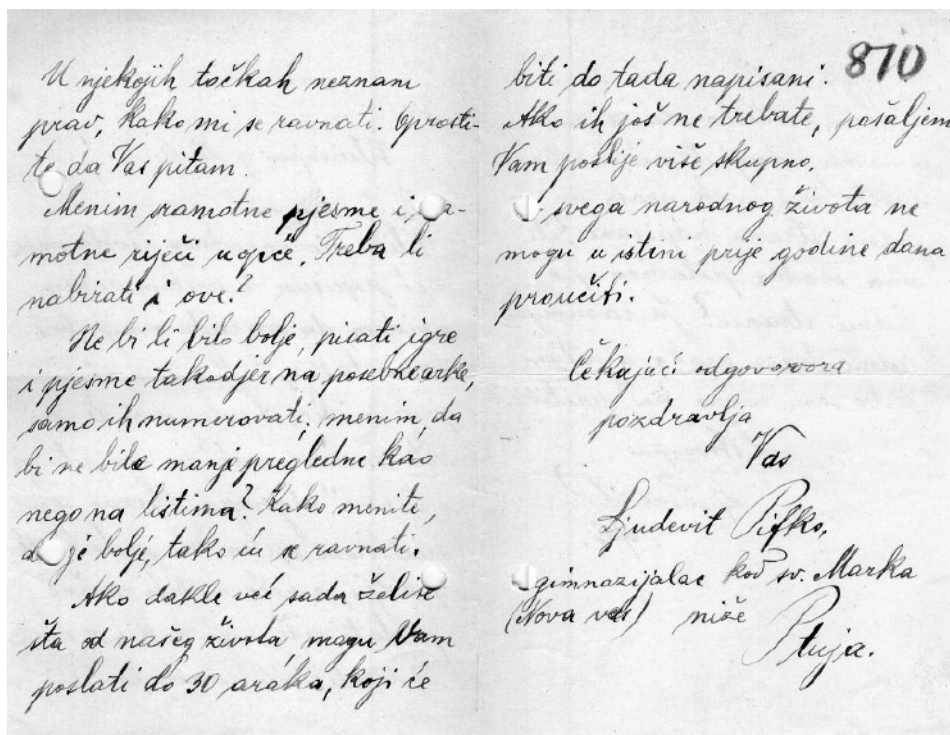 U njekojih točkah neznam
prav, kako mi se ravnati. Oprosti-
te da Vas pitam.
Menim sramotne pjesme i
motne riječi uopće. Treba li
nabirati i ove?
Ne bi li bilo bolje, pisati igre
i pjesme takodjer na posebne arke,
samo ih numerovati; menim, da
bi ne bile manje pregledne kao
nego na listima? Kako menite,
da je bolje, tako ću se ravnati.
Ako dakle već sada želite
šta od našeg života, mogu Vam
poslati do 30 araka, koji će
870
biti do tada napisani.
Ako ih još ne trebate, pošaljem
Vam poslije više skupno.
svega narodnog života ne
mogu u istini prije godine dana
proučiti.
Čekajući odgovora
pozdravlja
Vas
Ljudevit Pifko,
gimnazijalac kod sv. Marka
(Nova vas) niže
Ptuja.